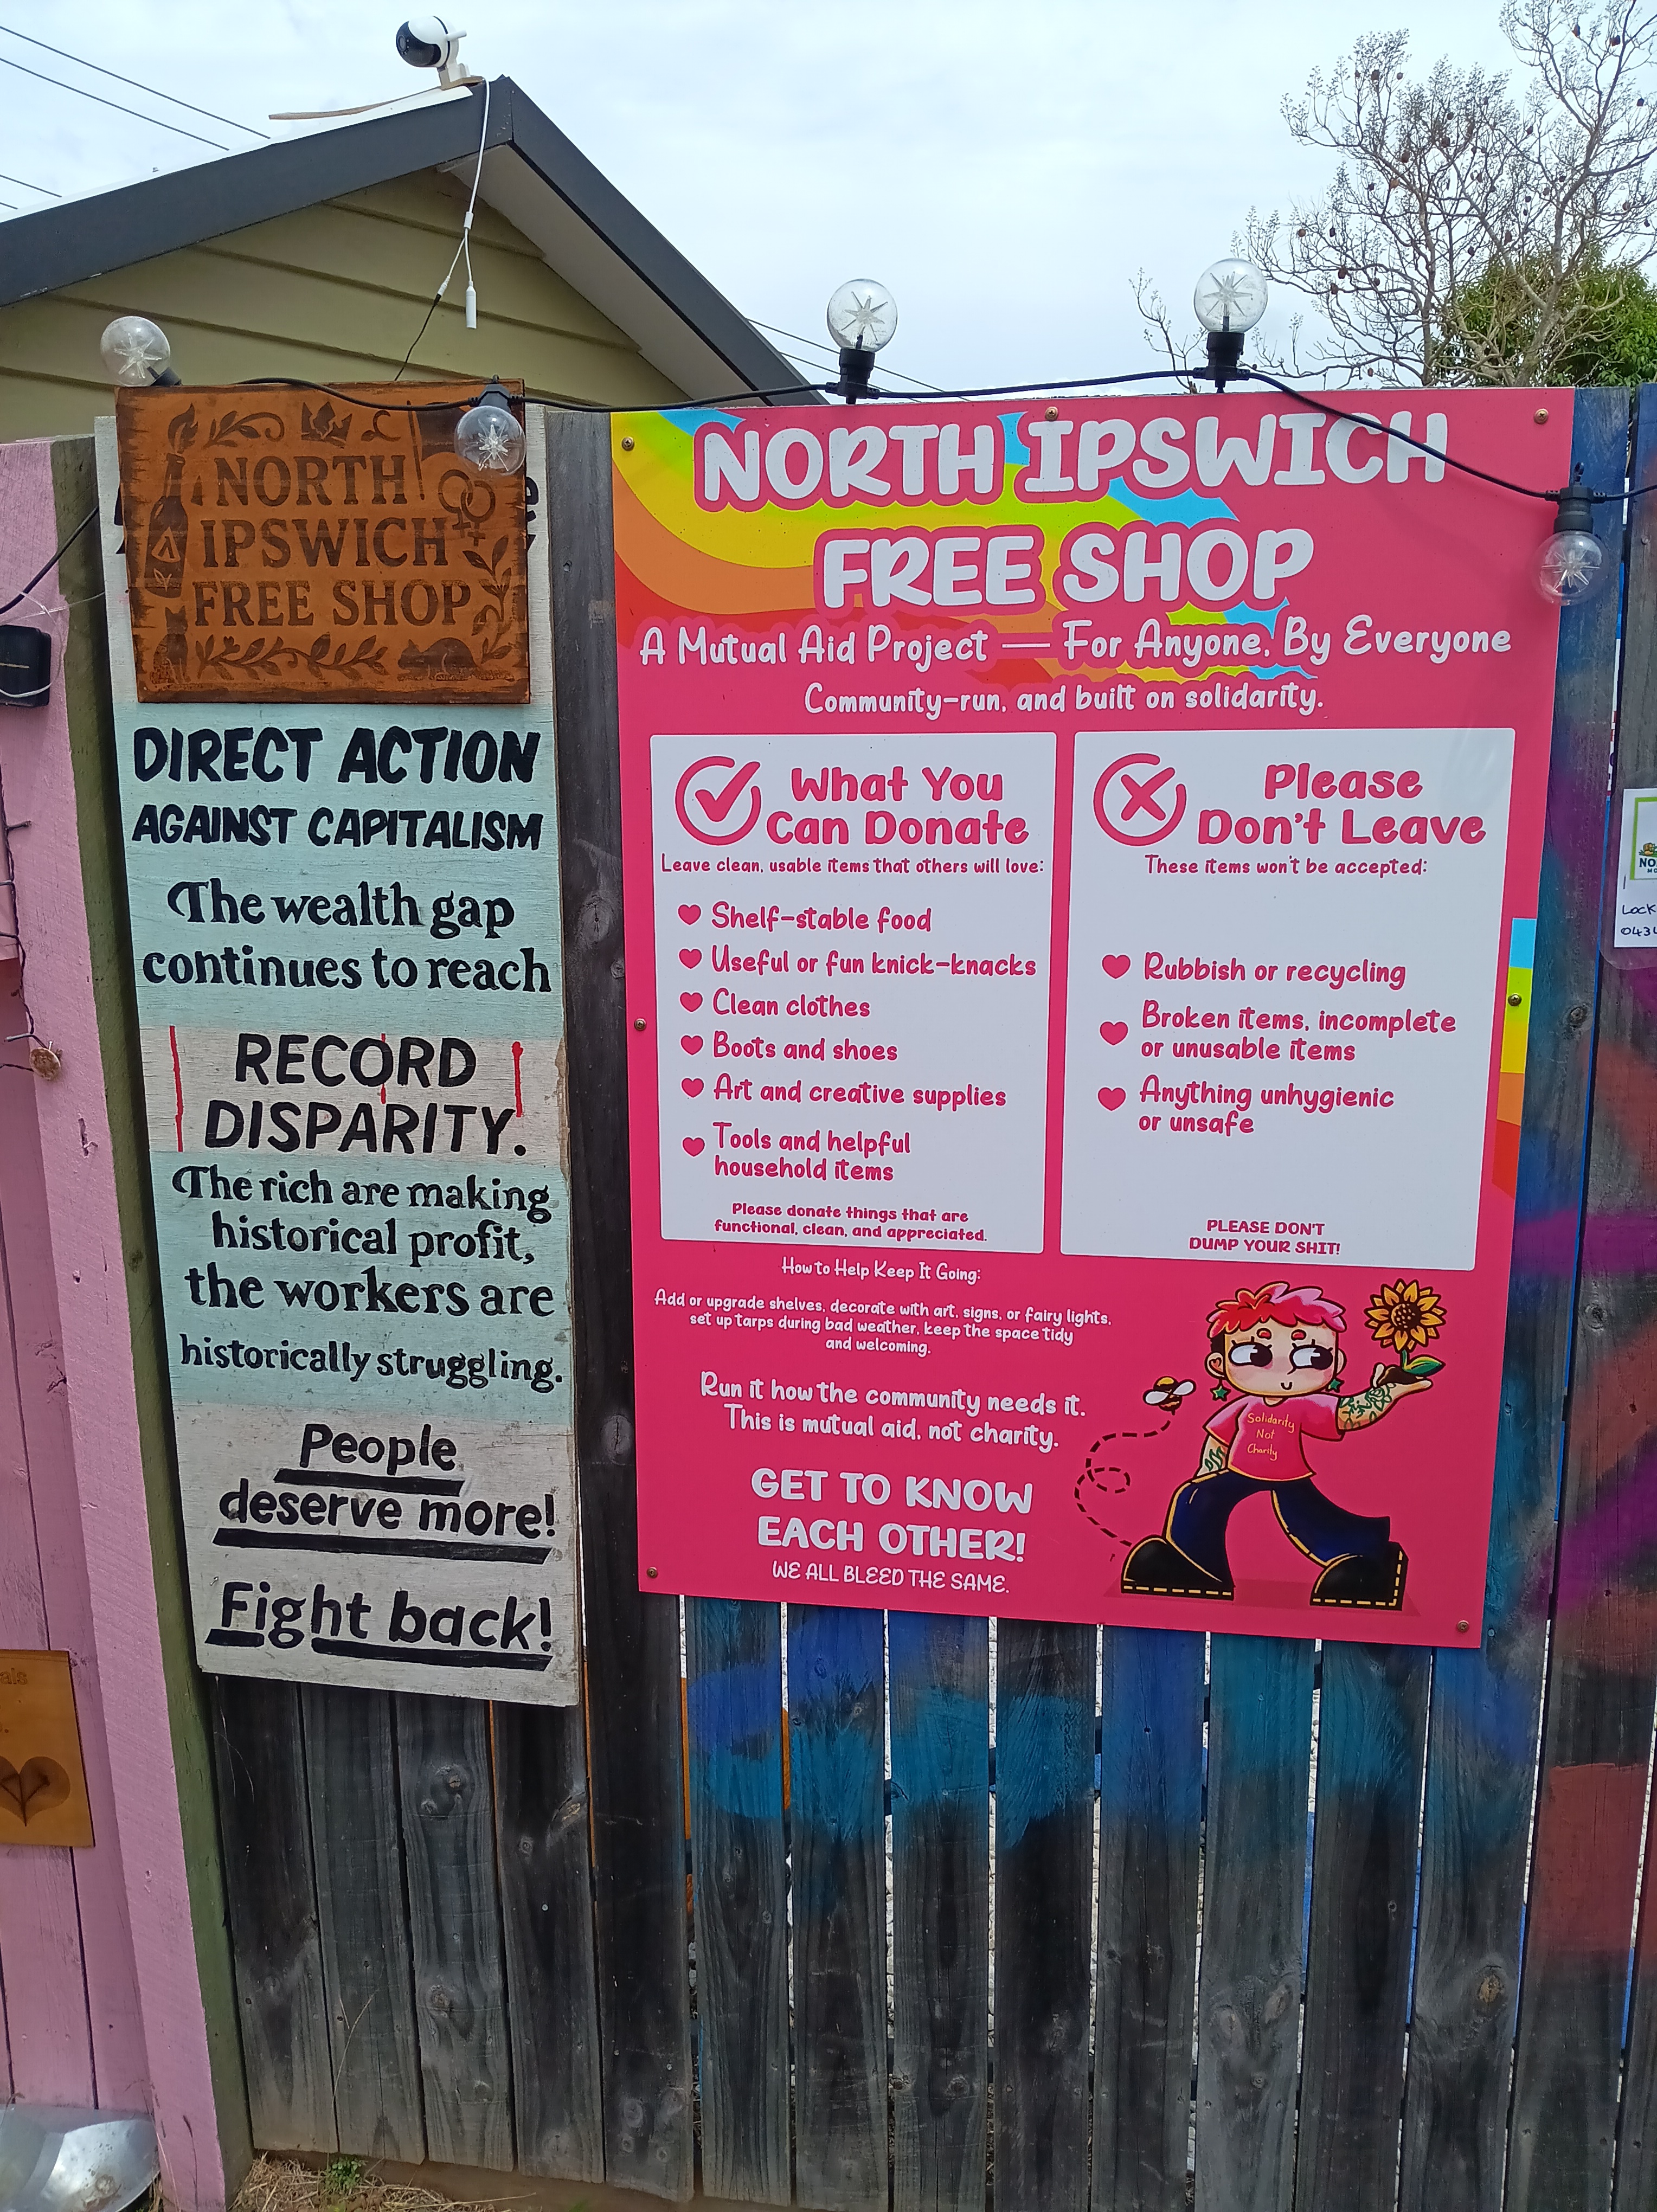 NORTH
IPSWICH
FREE SHOP
DIRECT ACTION
AGAINST CAPITALISM
The wealth gap
continues to reach
RECORD
DISPARITY.
The rich are making
historical profit,
the workers are
historically struggling.
People
deserve more!
Fight back!
NORTH IPSWICH
FREE SHOP
A Mutual Aid Project — For Anyone, By Everyone
Community-run, and built on solidarity.
What You
Can Donate
Leave clean, usable items that others will love:
Shelf-stable food
Useful or fun knick-knacks
Clean clothes
Boots and shoes
Art and creative supplies
Tools and helpful
household items
Please donate things that are
functional, clean, and appreciated.
Please
Don't Leave
These items won't be accepted:
Rubbish or recycling
Broken items, incomplete
or unusable items
Anything unhygienic
or unsafe
PLEASE DON'T
DUMP YOUR SHIT!
How to Help Keep It Going:
Add or upgrade shelves, decorate with art, signs, or fairy lights,
set up tarps during bad weather, keep the space tidy
and welcoming.
Run it how the community needs it.
This is mutual aid, not charity.
GET TO KNOW
EACH OTHER!
WE ALL BLEED THE SAME.
Solidarity
Not
Charity
NO
Lock
0434